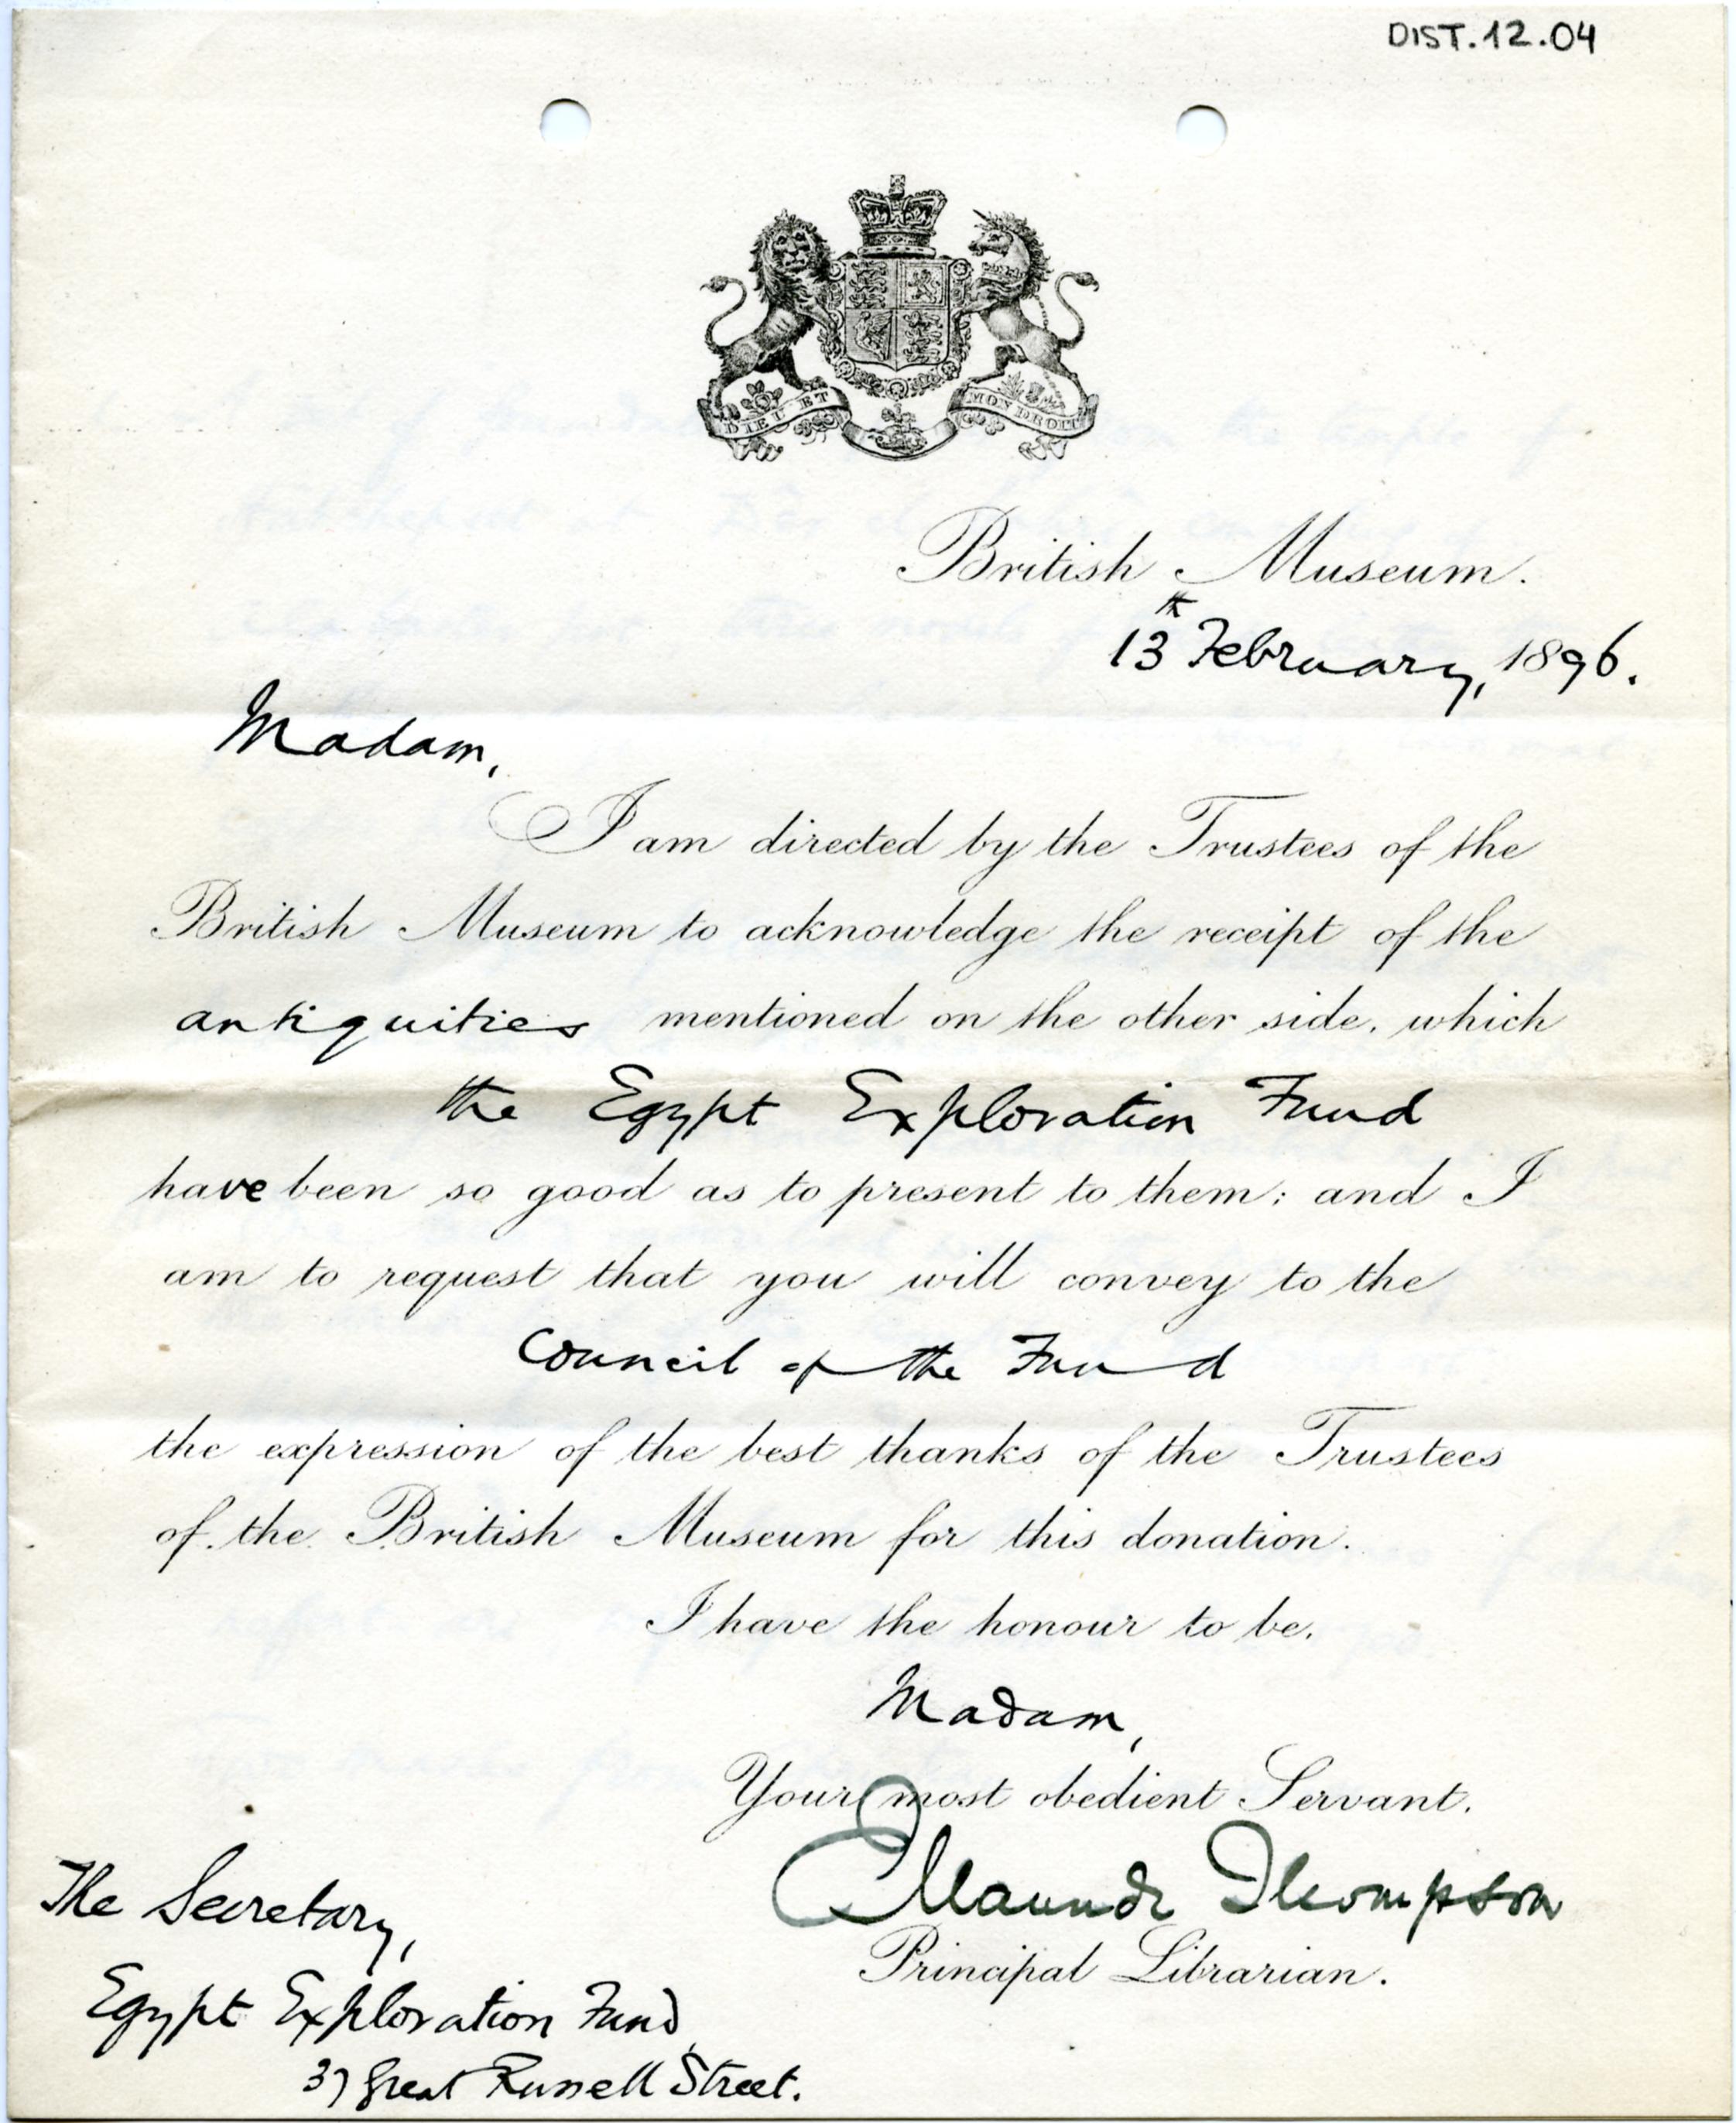 DIST.12.04
DIEU ET MON DROIT
British Museum.
13th February, 1896.
Madam,
I am directed by the Trustees of the
British Museum to acknowledge the receipt of the
antiquities mentioned on the other side, which
the Egypt Exploration Fund
have been so good as to present to them; and I
am to request that you will convey to the
Council of the Fund
the expression of the best thanks of the Trustees
of the British Museum for this donation.
I have the honour to be,
Madam,
Your most obedient Servant,
E Maunde Thompson
Principal Librarian.
The Secretary,
Egypt Exploration Fund,
37 Great Russell Street.